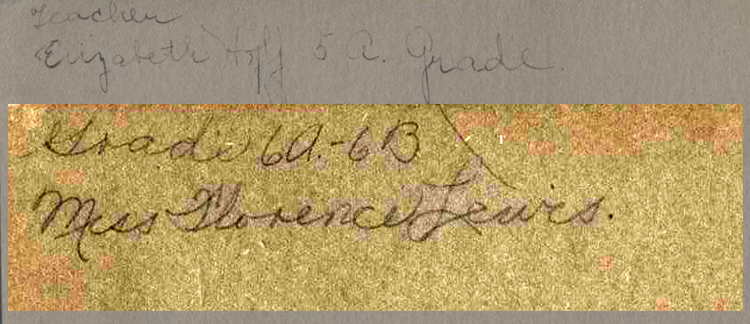 Teacher
Elizabeth Hoff 5 A. Grade.
Grade 6A.-6B
Miss Florence Lewis.